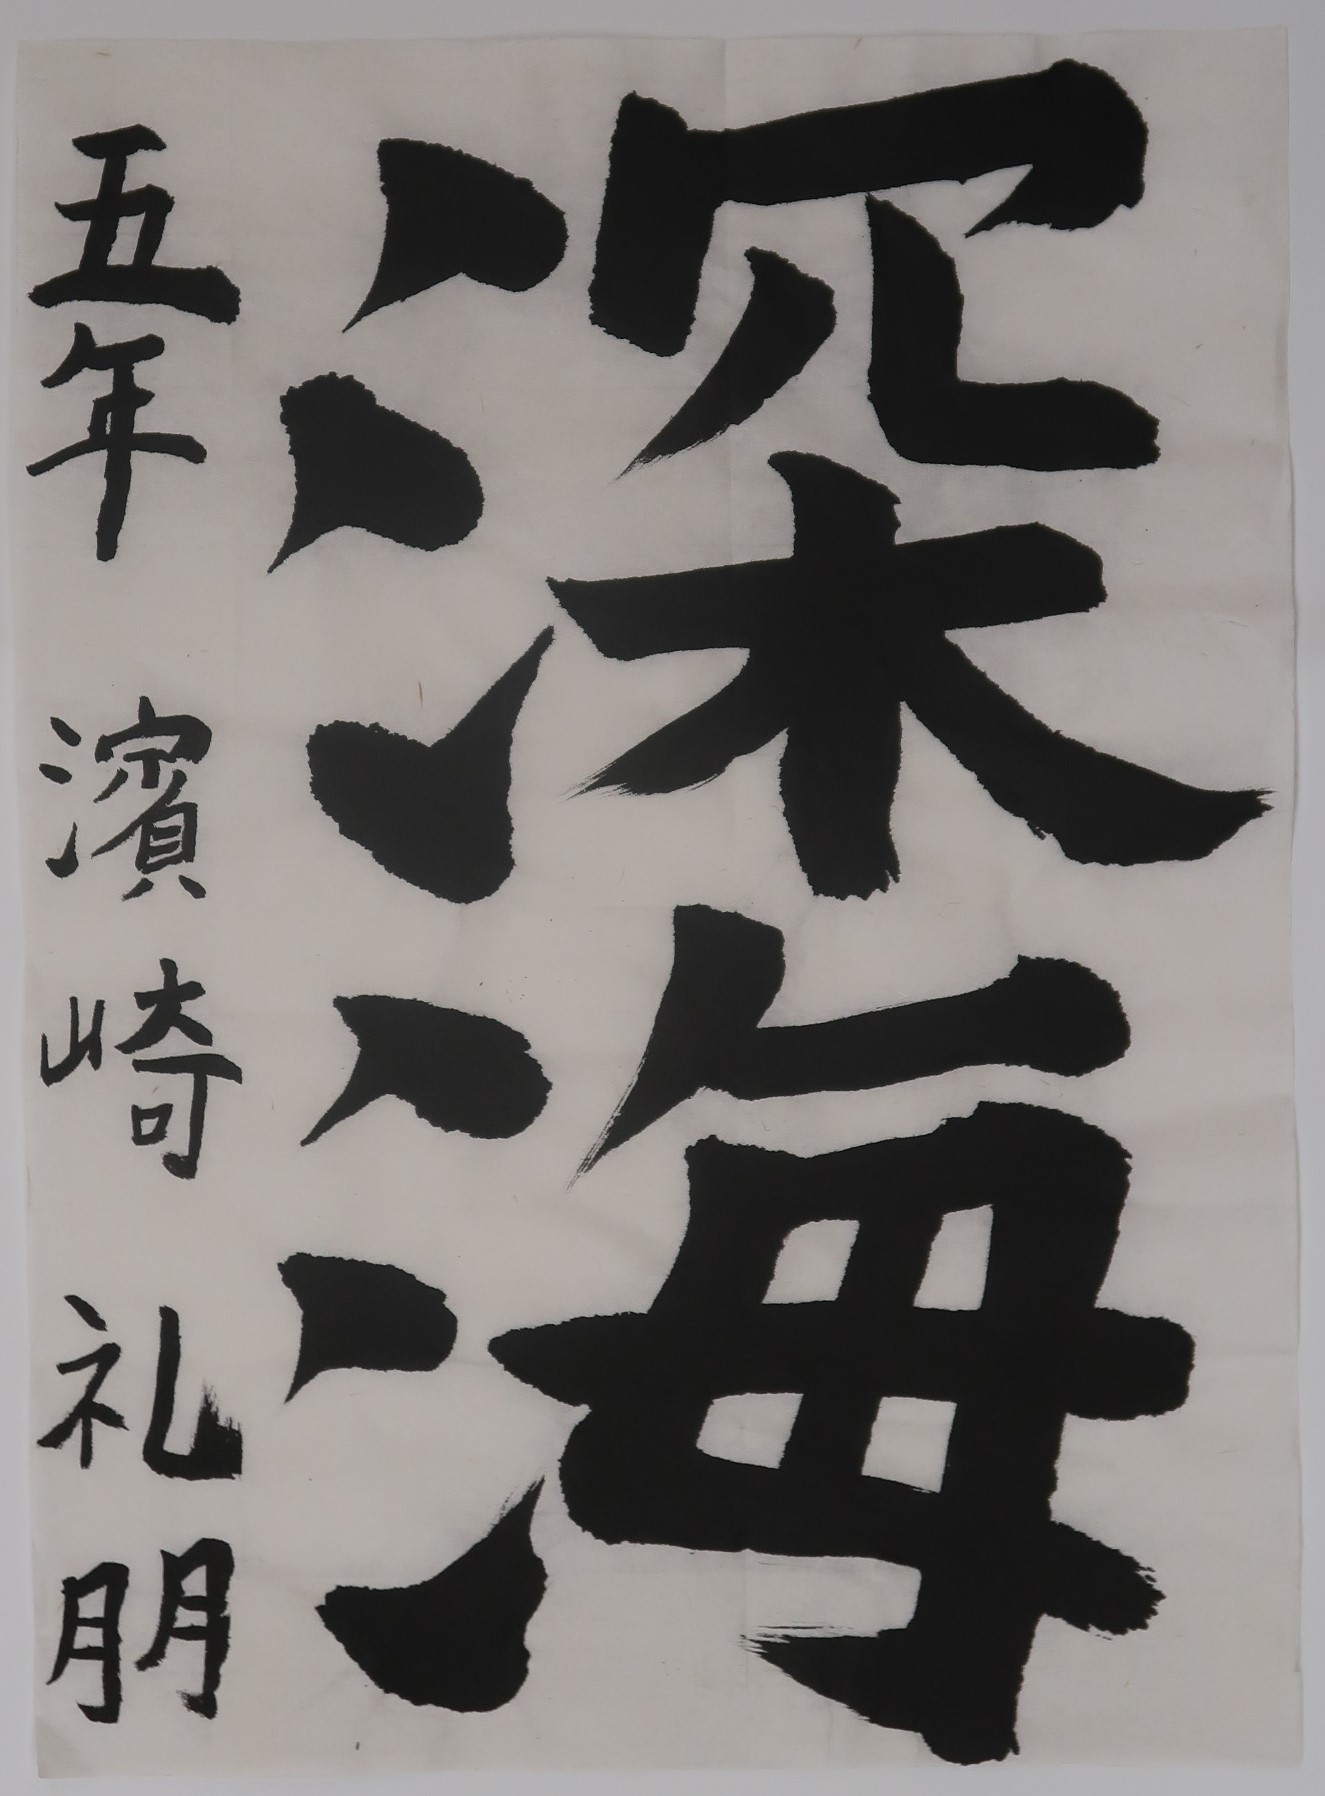 深海
五年 濱崎礼朋